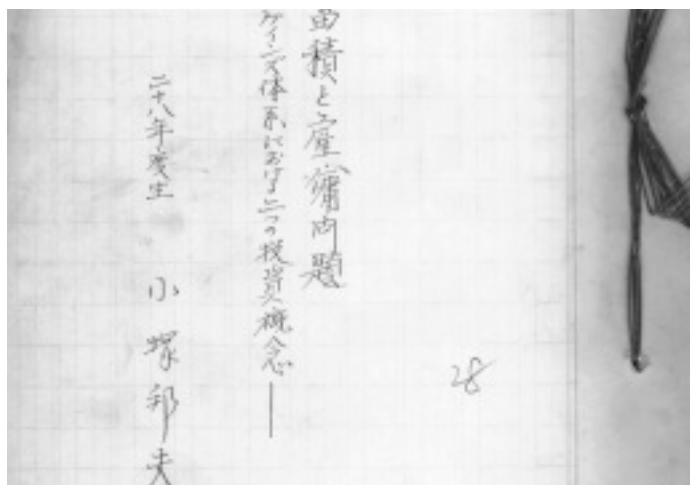 畜積と雇傭問題
ケインズ体系における二つの投資概念——
二十八年度生 小塚邦夫
28